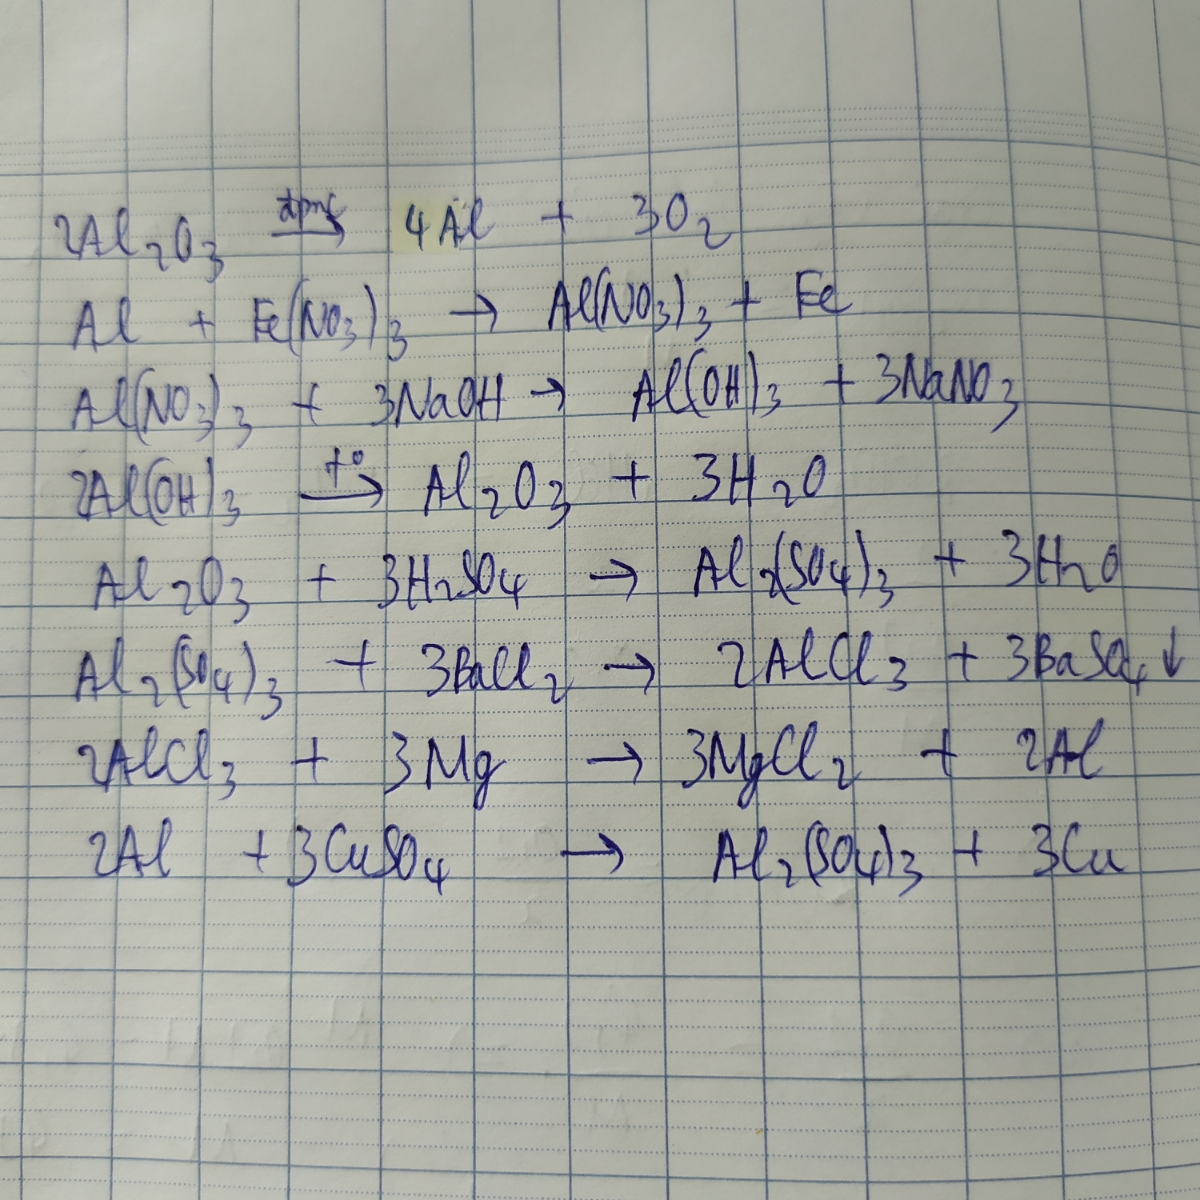 2Al₂O₃ →(đpnc) 4Al + 3O₂
Al + Fe(NO₃)₃ → Al(NO₃)₃ + Fe
Al(NO₃)₃ + 3NaOH → Al(OH)₃ + 3NaNO₃
2Al(OH)₃ →(t°) Al₂O₃ + 3H₂O
Al₂O₃ + 3H₂SO₄ → Al₂(SO₄)₃ + 3H₂O
Al₂(SO₄)₃ + 3BaCl₂ → 2AlCl₃ + 3BaSO₄↓
2AlCl₃ + 3Mg → 3MgCl₂ + 2Al
2Al + 3CuSO₄ → Al₂(SO₄)₃ + 3Cu